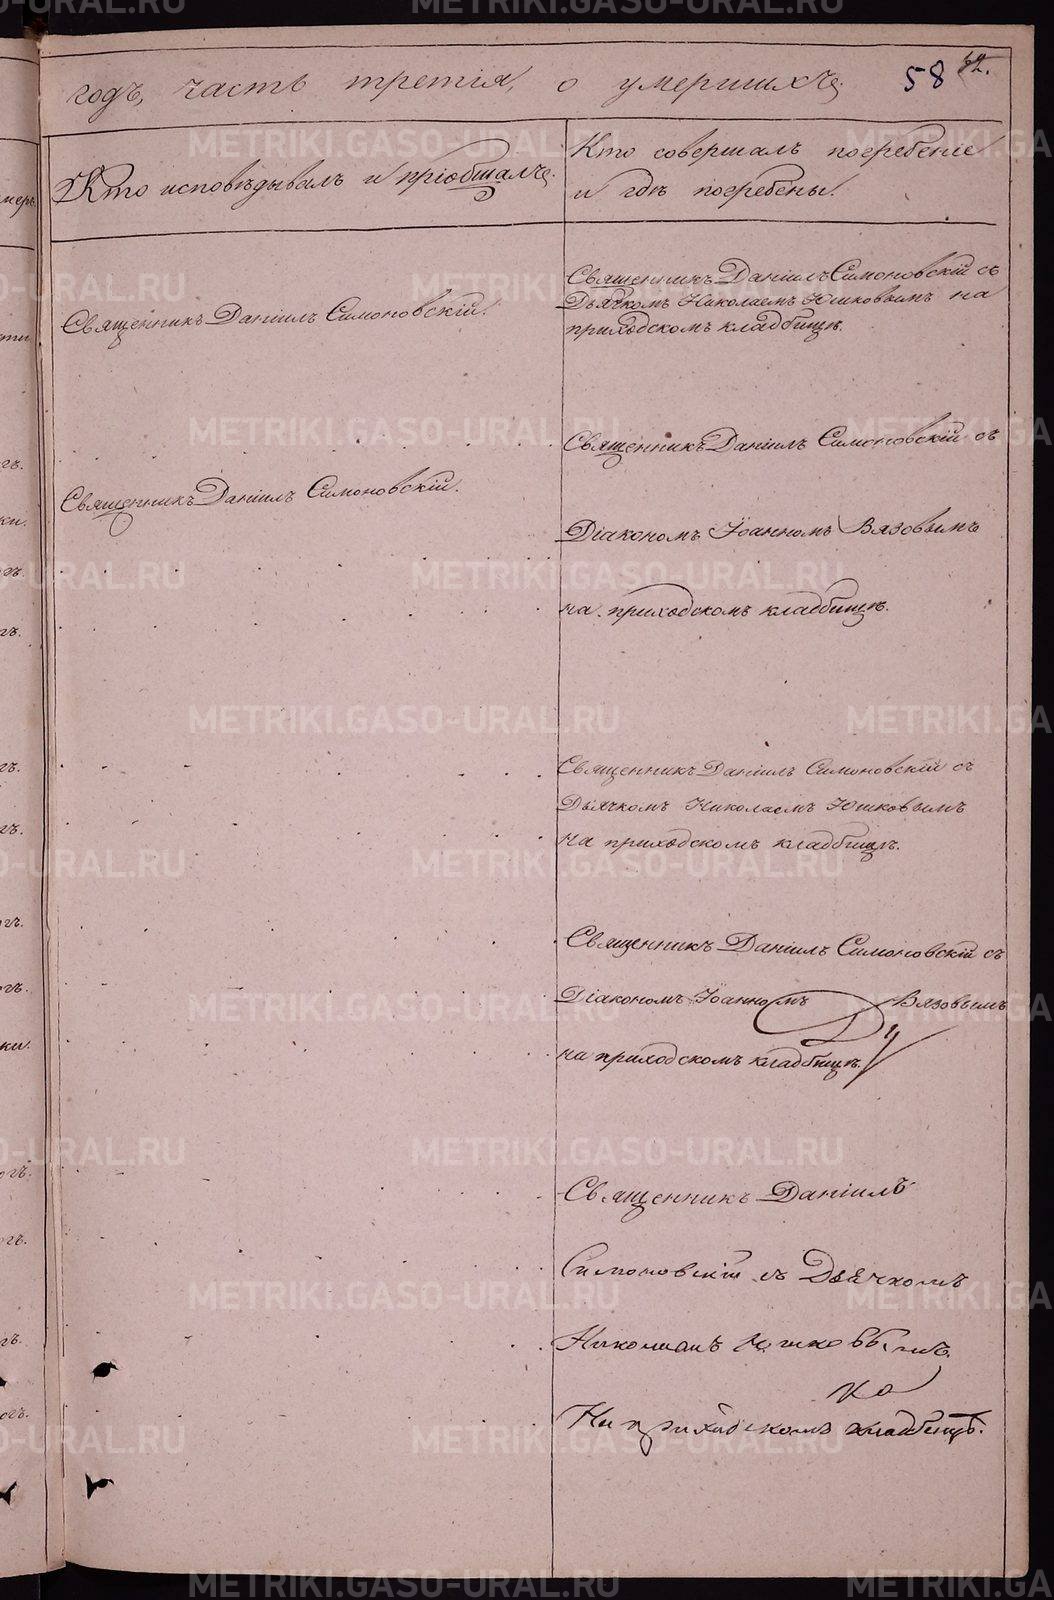 годъ, часть третія, о умершихъ.
58
Кто исповѣдывалъ и пріобщалъ.
Кто совершалъ погребеніе
и гдѣ погребены.
Священникъ Даніилъ Симоновскій.
Священникъ Даніилъ Симоновскій съ
Дьячкомъ Николаемъ Юшковымъ на
приходскомъ кладбищѣ.
Священникъ Даніилъ Симоновскій съ
Священникъ Даніилъ Симоновскій.
Діакономъ Іоанномъ Вязовымъ
на приходскомъ кладбищѣ.
Священникъ Даніилъ Симоновскій съ
Дьячкомъ Николаемъ Юшковымъ
на приходскомъ кладбищѣ.
Священникъ Даніилъ Симоновскій съ
Діакономъ Іоанномъ Вязовымъ
на приходскомъ кладбищѣ.
Священникъ Даніилъ
Симоновскій съ Дьячкомъ
Юшковымъ
На приходскомъ кладбищѣ.
METRIKI.GASO-URAL.RU